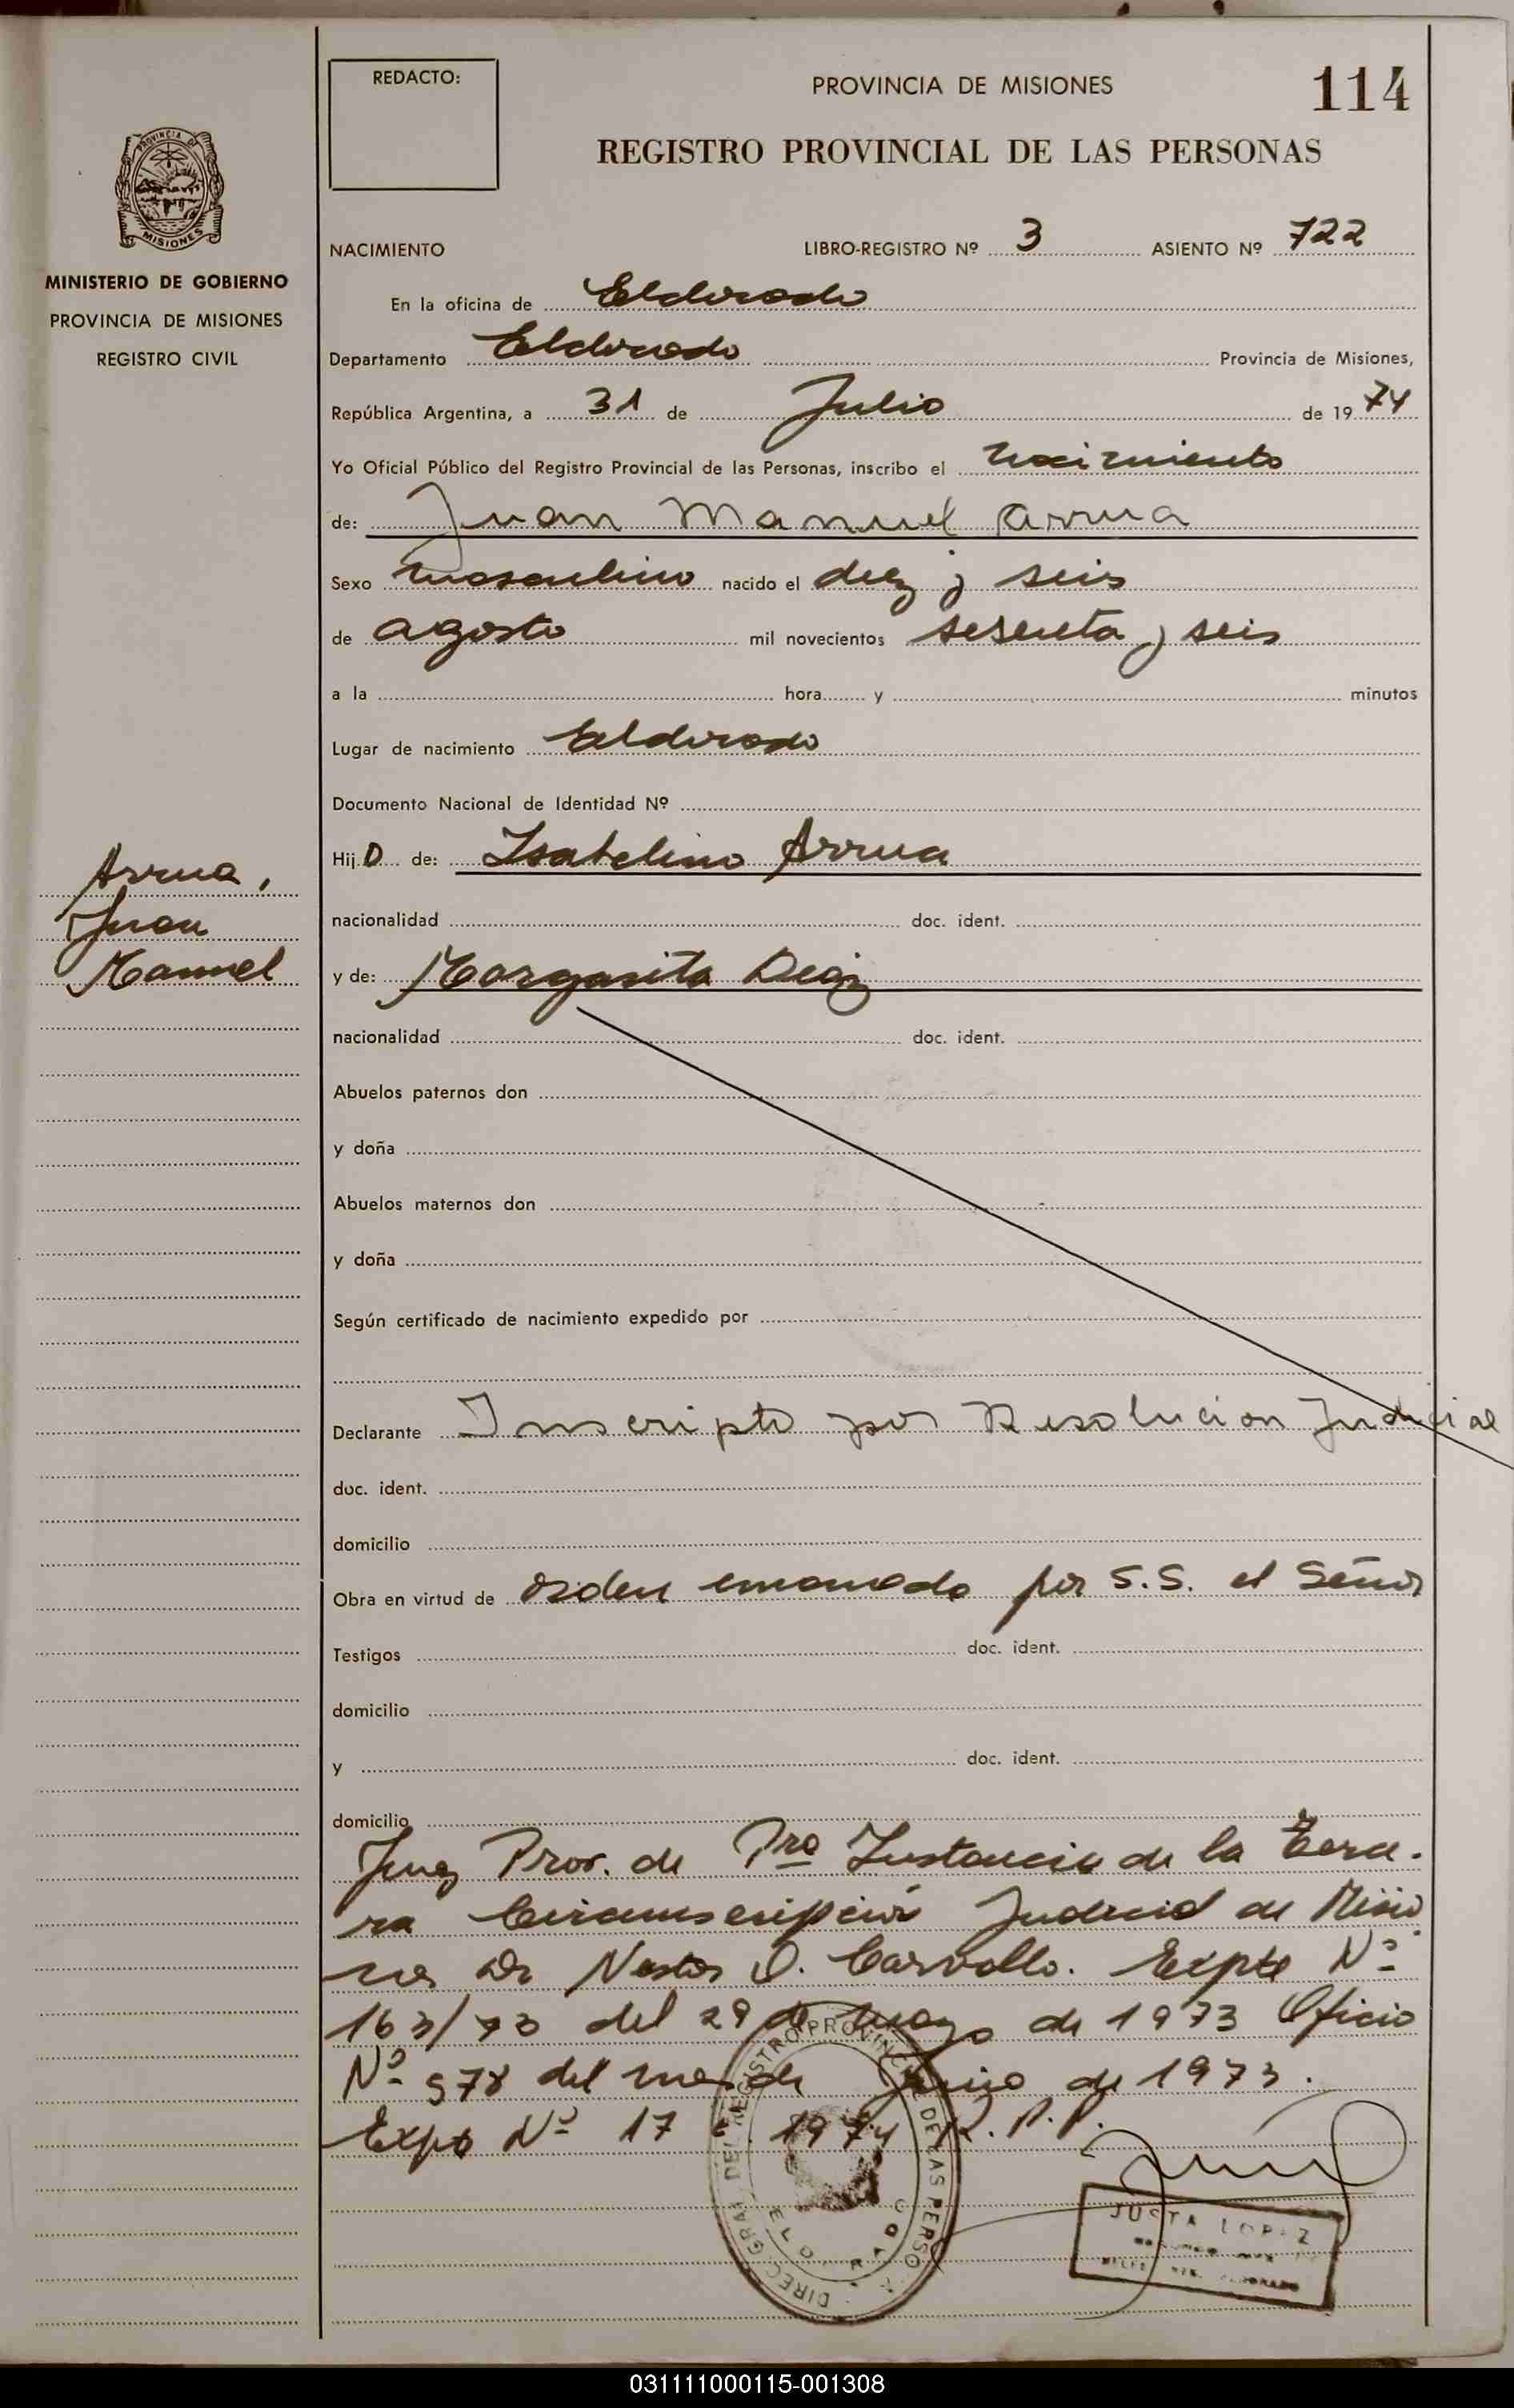 REDACTO:
PROVINCIA DE MISIONES
114
REGISTRO PROVINCIAL DE LAS PERSONAS
PROVINCIA DE
MISIONES
MINISTERIO DE GOBIERNO
PROVINCIA DE MISIONES
REGISTRO CIVIL
NACIMIENTO LIBRO-REGISTRO Nº 3 ASIENTO Nº 722
En la oficina de Eldorado
Departamento Eldorado Provincia de Misiones,
República Argentina, a 31 de Julio de 1974
Yo Oficial Público del Registro Provincial de las Personas, inscribo el nacimiento
de: Juan Manuel Arrua
Sexo masculino nacido el diez y seis
de agosto mil novecientos sesenta y seis
a la hora y minutos
Lugar de nacimiento Eldorado
Documento Nacional de Identidad Nº
Hijo de: Isabelino Arrua
Arrua,
Juan
Manuel
nacionalidad doc. ident.
y de: Margarita Diaz
nacionalidad doc. ident.
Abuelos paternos don
y doña
Abuelos maternos don
y doña
Según certificado de nacimiento expedido por
Declarante Inscripto por Resolucion Judicial
doc. ident.
domicilio
Obra en virtud de orden emanada por S.S. el Señor
Testigos doc. ident.
domicilio
y doc. ident.
domicilio
Juez Prov. de Pra Instancia de la Terce-
ra Circunscripción Judicial de Misio
nes Dr Nestor O. Carvallo. Expte Nº
163/73 del 29 de mayo de 1973 Oficio
Nº 578 del mes de Junio de 1973.
Expte Nº 17 1974 R.P.P.
DIREC. GRAL. DEL REGISTRO PROVINCIAL DE LAS PERSONAS
ELDORADO
JUSTA LOPEZ
031111000115-001308